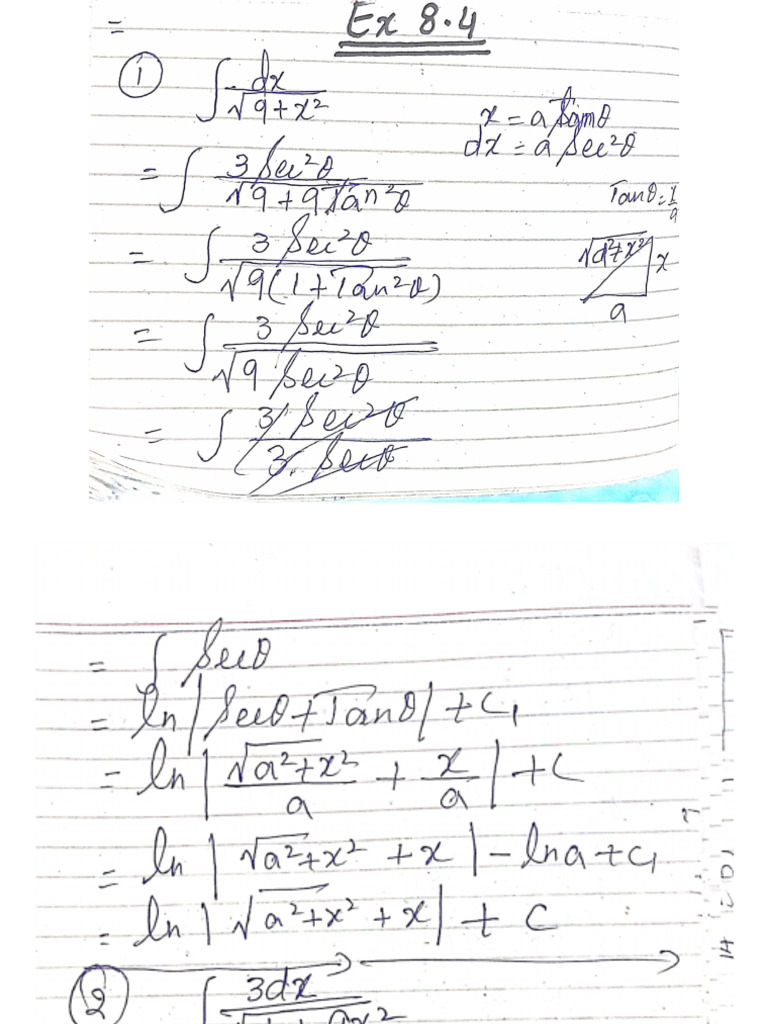 = Ex 8.4
① ∫ dx / √9+x²
x = a Tanθ
dx = a Sec²θ
= ∫ 3 Sec²θ / √9+9Tan²θ
Tanθ = 
= ∫ 3 Sec²θ / √9(1+Tan²θ)
√a²+x² x
a
= ∫ 3 Sec²θ / √9 Sec²θ
= ∫ 3 Sec²θ / 3. Secθ
= ∫ Secθ
= ln|Secθ+Tanθ|+C₁
= ln|√a²+x² / a + x / a|+C
= ln|√a²+x² +x|-lna+C₁
= ln|√a²+x² +x| + C
② ∫ 3dx